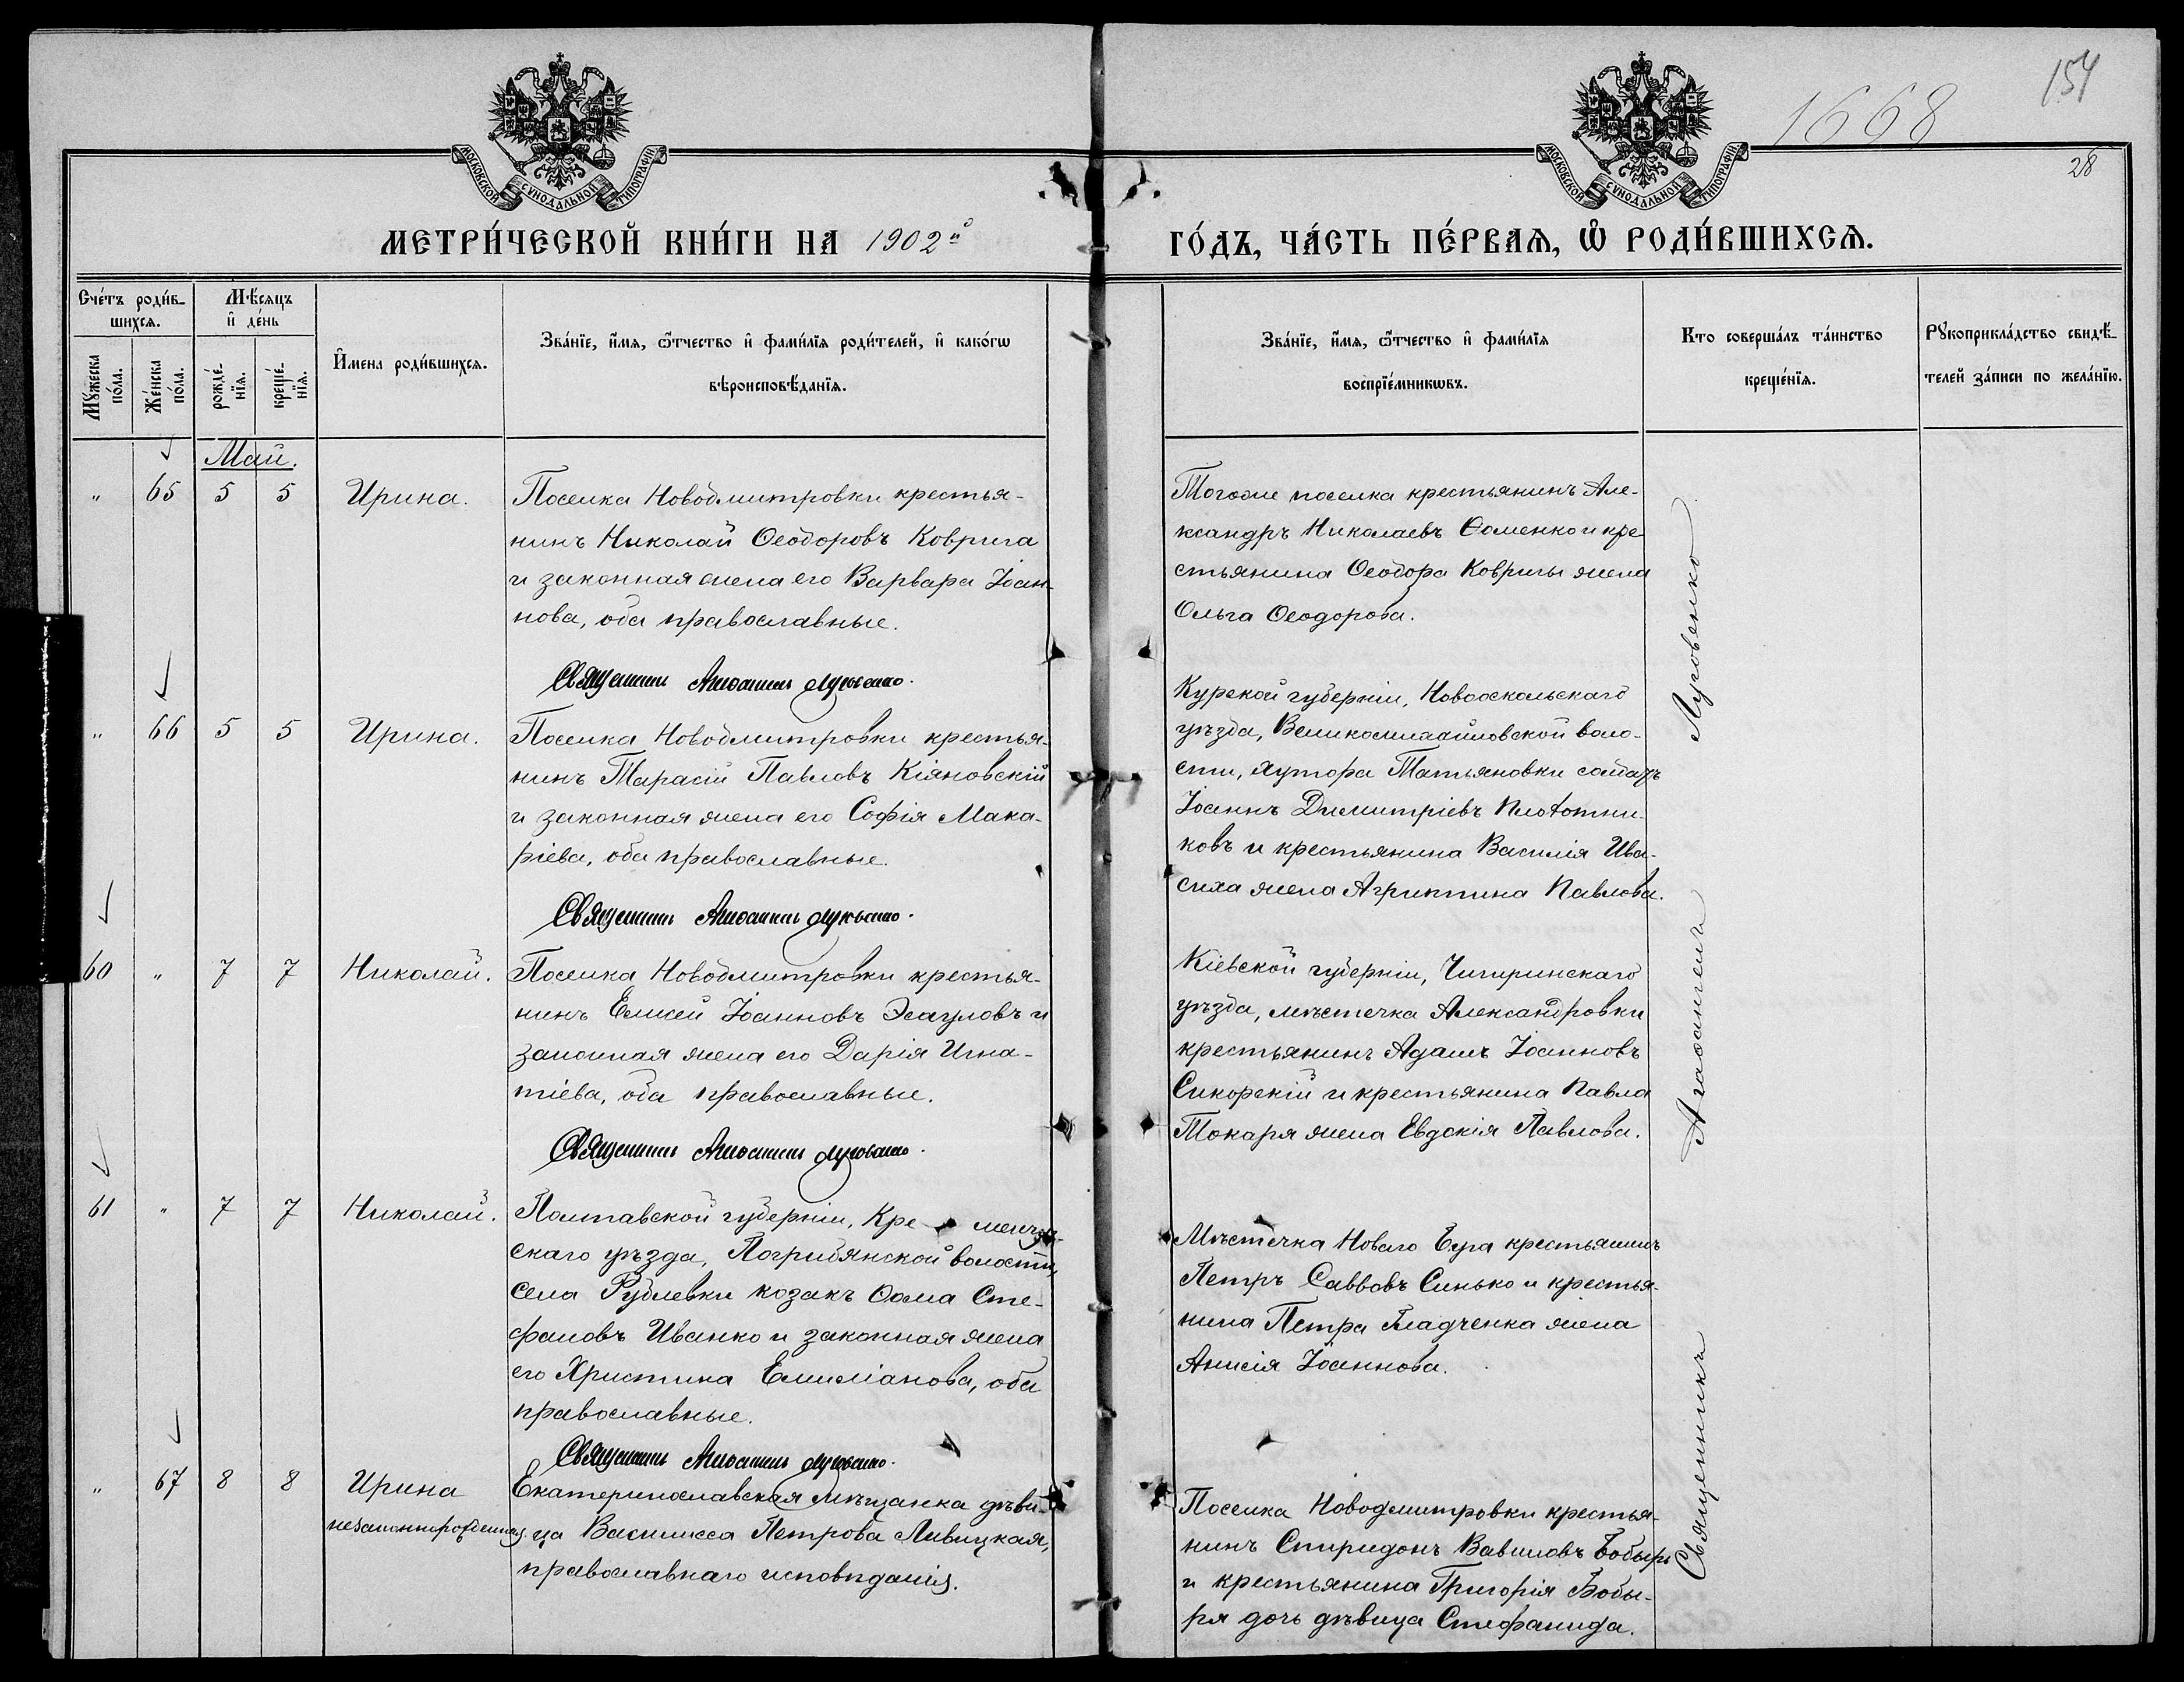 1668
154
28
МОСКОВСКОЙ СУНОДАЛЬНОЙ ТИПОГРАФІИ
МОСКОВСКОЙ СУНОДАЛЬНОЙ ТИПОГРАФІИ
МЕТРИ́ЧЕСКОЙ КНИ́ГИ НА 1902й
ГО́ДЪ, ЧА́СТЬ ПЕ́РВАѦ, Ѽ РОДИ́ВШИХСѦ.
Сче́тъ роди́в-
шихсѧ.
Мꙋжеска по́ла.
Же́нска по́ла.
Мѣ́сѧцъ
и҆ де́нь
рожде́-
нїѧ.
креще́-
нїѧ.
И҆мена роди́вшихсѧ.
Зва́нїе, и҆́мѧ, ѻ҆́тчество и҆ фами́лїѧ роди́телей, и҆ како́гѡ
вѣроисповѣ́данїѧ.
Зва́нїе, и҆́мѧ, ѻ҆́тчество и҆ фами́лїѧ
воспрїе́мникѡвъ.
Кто соверша́лъ та́инство
креще́нїѧ.
Рꙋкоприкла́дство свидѣ́-
телей за́писи по жела́нїю.
Май.
" 65 5 5 Ирина.
Поселка Новодмитровки крестья-
нинъ Николай Ѳеодоровъ Коврига
и законная жена его Варвара Іоан-
нова, оба православные.
Священникъ Аѳанасій Луговенко.
Тогоже поселка крестьянинъ Але-
ксандръ Николаевъ Ѳоменко и кре
стьянина Ѳеодора Ковриги жена
Ольга Ѳеодорова.
" 66 5 5 Ирина.
Поселка Новодмитровки крестья-
нинъ Тарасій Павловъ Кіяновскій
и законная жена его Софія Мака-
ріева, оба православные.
Священникъ Аѳанасій Луговенко.
Курской губерніи, Новооскольскаго
уѣзда, Великомихайловской воло-
сти, хутора Татьяновки солдатъ
Іоаннъ Димитріевъ Плотни-
ковъ и крестьянина Василія Ива-
сиха жена Агриппина Павлова.
60 " 7 7 Николай.
Поселка Новодмитровки крестья-
нинъ Елисей Іоанновъ Эсауловъ и
законная жена его Дарія Игна-
тіева, оба православные.
Священникъ Аѳанасій Луговенко.
Кіевской губерніи, Чигиринскаго
уѣзда, мѣстечка Александровки
крестьянинъ Адамъ Іоанновъ
Сикорскій и крестьянина Павла
Токаря жена Евдокія Павлова.
61 " 7 7 Николай.
Полтавской губерніи, Кременчуг-
скаго уѣзда, Погрибянской волости,
села Рублевки козакъ Ѳома Сте-
фановъ Иванко и законная жена
его Христина Емиліанова, оба
православные.
Священникъ Аѳанасій Луговенко.
Мѣстечка Новаго Буга крестьянинъ
Петръ Саввовъ Синько и крестья-
нина Петра Гладченка жена
Анисія Іоаннова.
" 67 8 8 Ирина
незаконнорожденная.
Екатеринославская мѣщанка дѣви-
ца Василисса Петрова Ливицкая,
православнаго исповѣданія.
Поселка Новодмитровки крестья-
нинъ Спиридонъ Вавиловъ Бобырь
и крестьянина Григорія Бобы-
ря дочь дѣвица Стефанида.
Священникъ Аѳанасій Луговенко